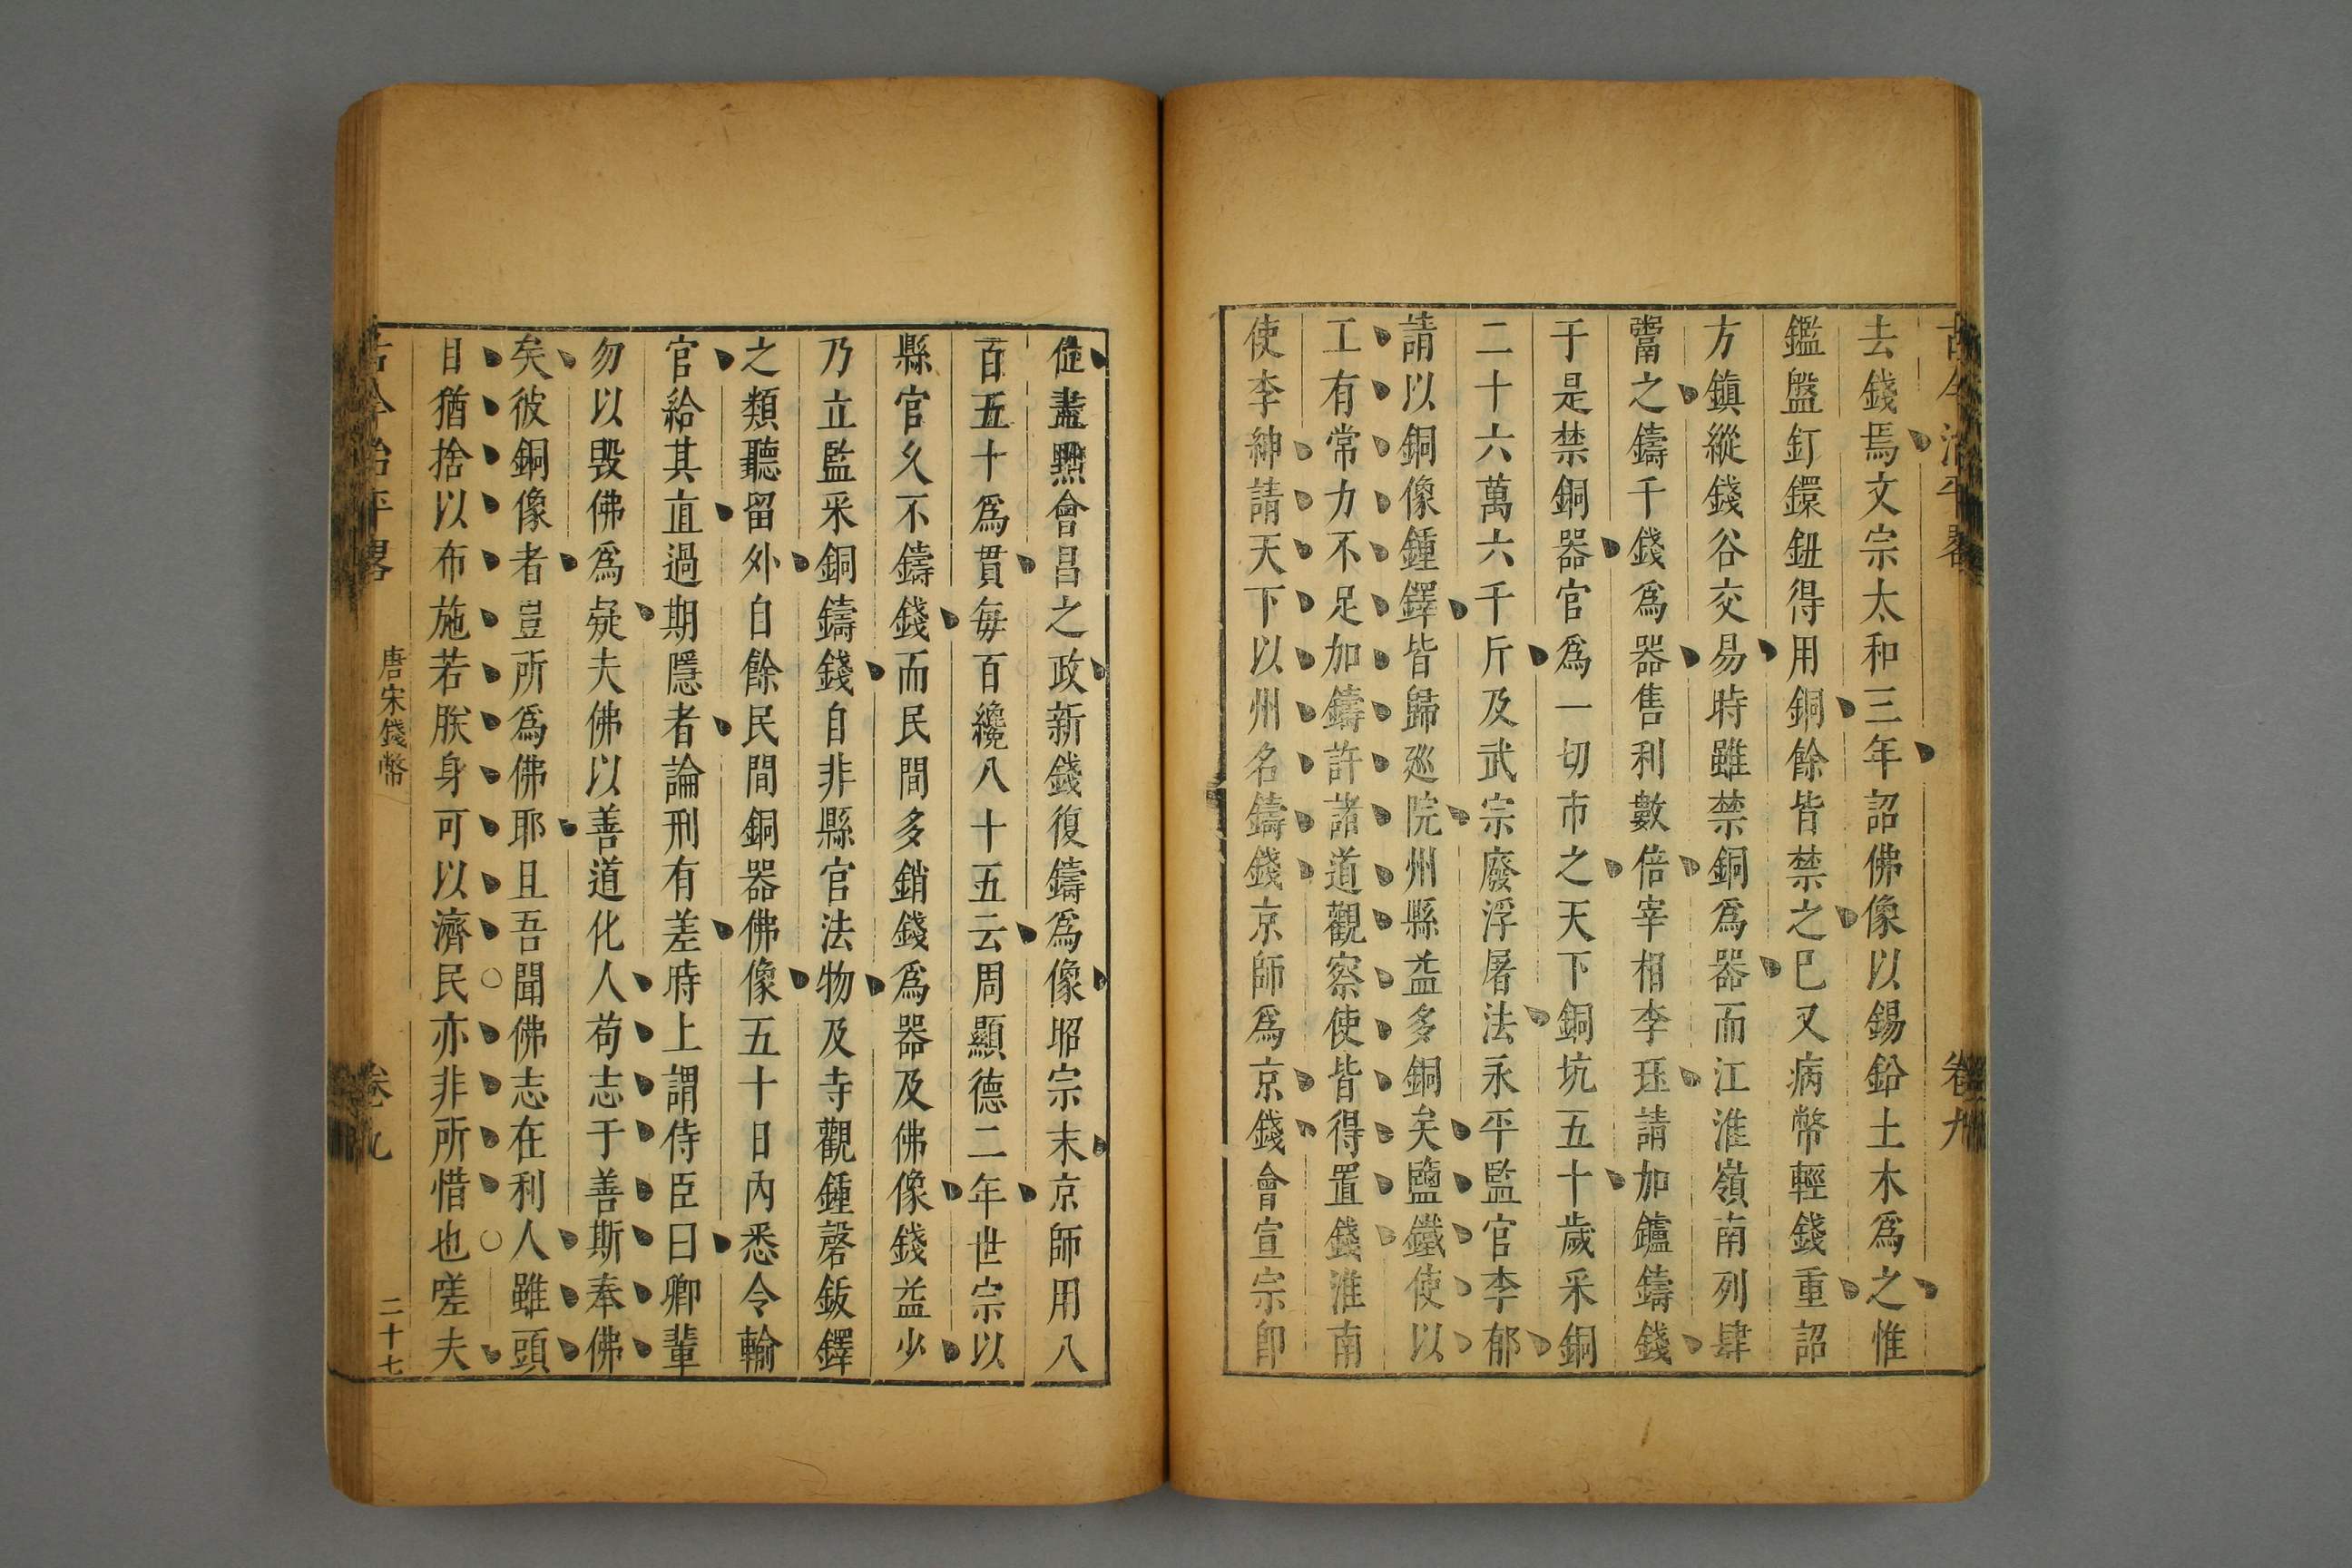 古今治平畧
卷九
去錢焉文宗太和三年詔佛像以錫鉛土木爲之惟
鑑盤釘鐶鈕得用銅餘皆禁之巳又病幣輕錢重詔
方鎮縱錢谷交易時雖禁銅爲器而江淮嶺南列肆
鬻之鑄千錢爲器售利數倍宰相李珏請加鑪鑄錢
于是禁銅器官爲一切市之天下銅坑五十歲采銅
二十六萬六千斤及武宗廢浮屠法永平監官李郁
請以銅像鍾鐸皆歸廵院州縣益多銅矣鹽鐵使以
工有常力不足加鑄許諸道觀察使皆得置錢淮南
使李紳請天下以州名鑄錢京師爲京錢會宣宗卽
位盡黜會昌之政新錢復鑄爲像昭宗末京師用八
百五十爲貫每百纔八十五云周顯德二年世宗以
縣官久不鑄錢而民間多銷錢爲器及佛像錢益少
乃立監采銅鑄錢自非縣官法物及寺觀鍾磬鈸鐸
之類聽留外自餘民間銅器佛像五十日內悉令輸
官給其直過期隱者論刑有差時上謂侍臣曰卿輩
勿以毀佛爲疑夫佛以善道化人苟志于善斯奉佛
矣彼銅像者豈所爲佛耶且吾聞佛志在利人雖頭
目猶捨以布施若朕身可以濟民亦非所惜也嗟夫
古今治平畧
唐宋錢幣
卷九
二十七